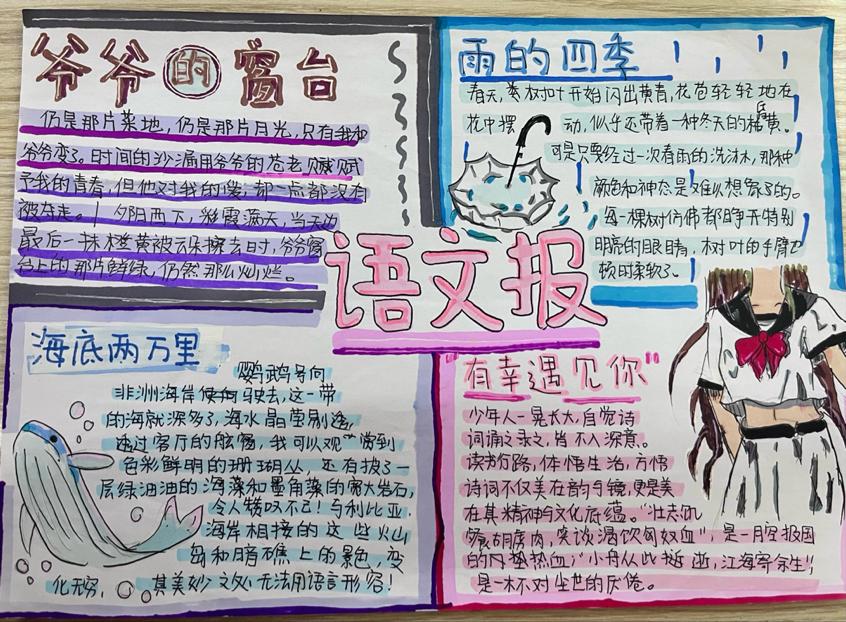 爷爷的窗台
仍是那片菜地，仍是那片月光，只有我和
爷爷变了。时间的沙漏用爷爷的苍老赋
予我的青春，但他对我的爱，却一点都没有
被夺走。夕阳西下，彩霞满天，当天边
最后一抹橙黄被云朵擦去时，爷爷窗
台上的那片鲜绿，仍然那么灿烂。
雨的四季
春天，树叶开始闪出黄青，花苞轻轻地在
花中摆动，似乎还带着一种冬天的昏黄。
可是只要经过一次春雨的洗淋，那种
颜色和神态是难以想象的。
每一棵树仿佛都睁开特别
明亮的眼睛，树叶的手臂也
顿时柔软了。
语文报
海底两万里
鹦鹉号向
非洲海岸驶去，这一带
的海就深多了，海水晶莹剔透，
透过客厅的舷窗，我可以观赏到
色彩鲜明的珊瑚丛，还有披了一
层绿油油的海藻和墨角藻的宽大岩石，
令人赞叹不已！与利比亚
海岸相接的这些火山
岛和暗礁上的景色，变
化无穷，其美妙之处无法用语言形容！
"有幸遇见你"
少年人一晃长大，自觉诗
词诵之求之，皆不入深意。
读书行路，体悟生活，方悟
诗词不仅美在韵与镜，更是美
在其精神与文化底蕴。"壮志饥
餐胡虏肉，笑谈渴饮匈奴血"，是一腔报国
的热血，"小舟从此逝，江海寄余生"，
是一杯对尘世的厌倦。